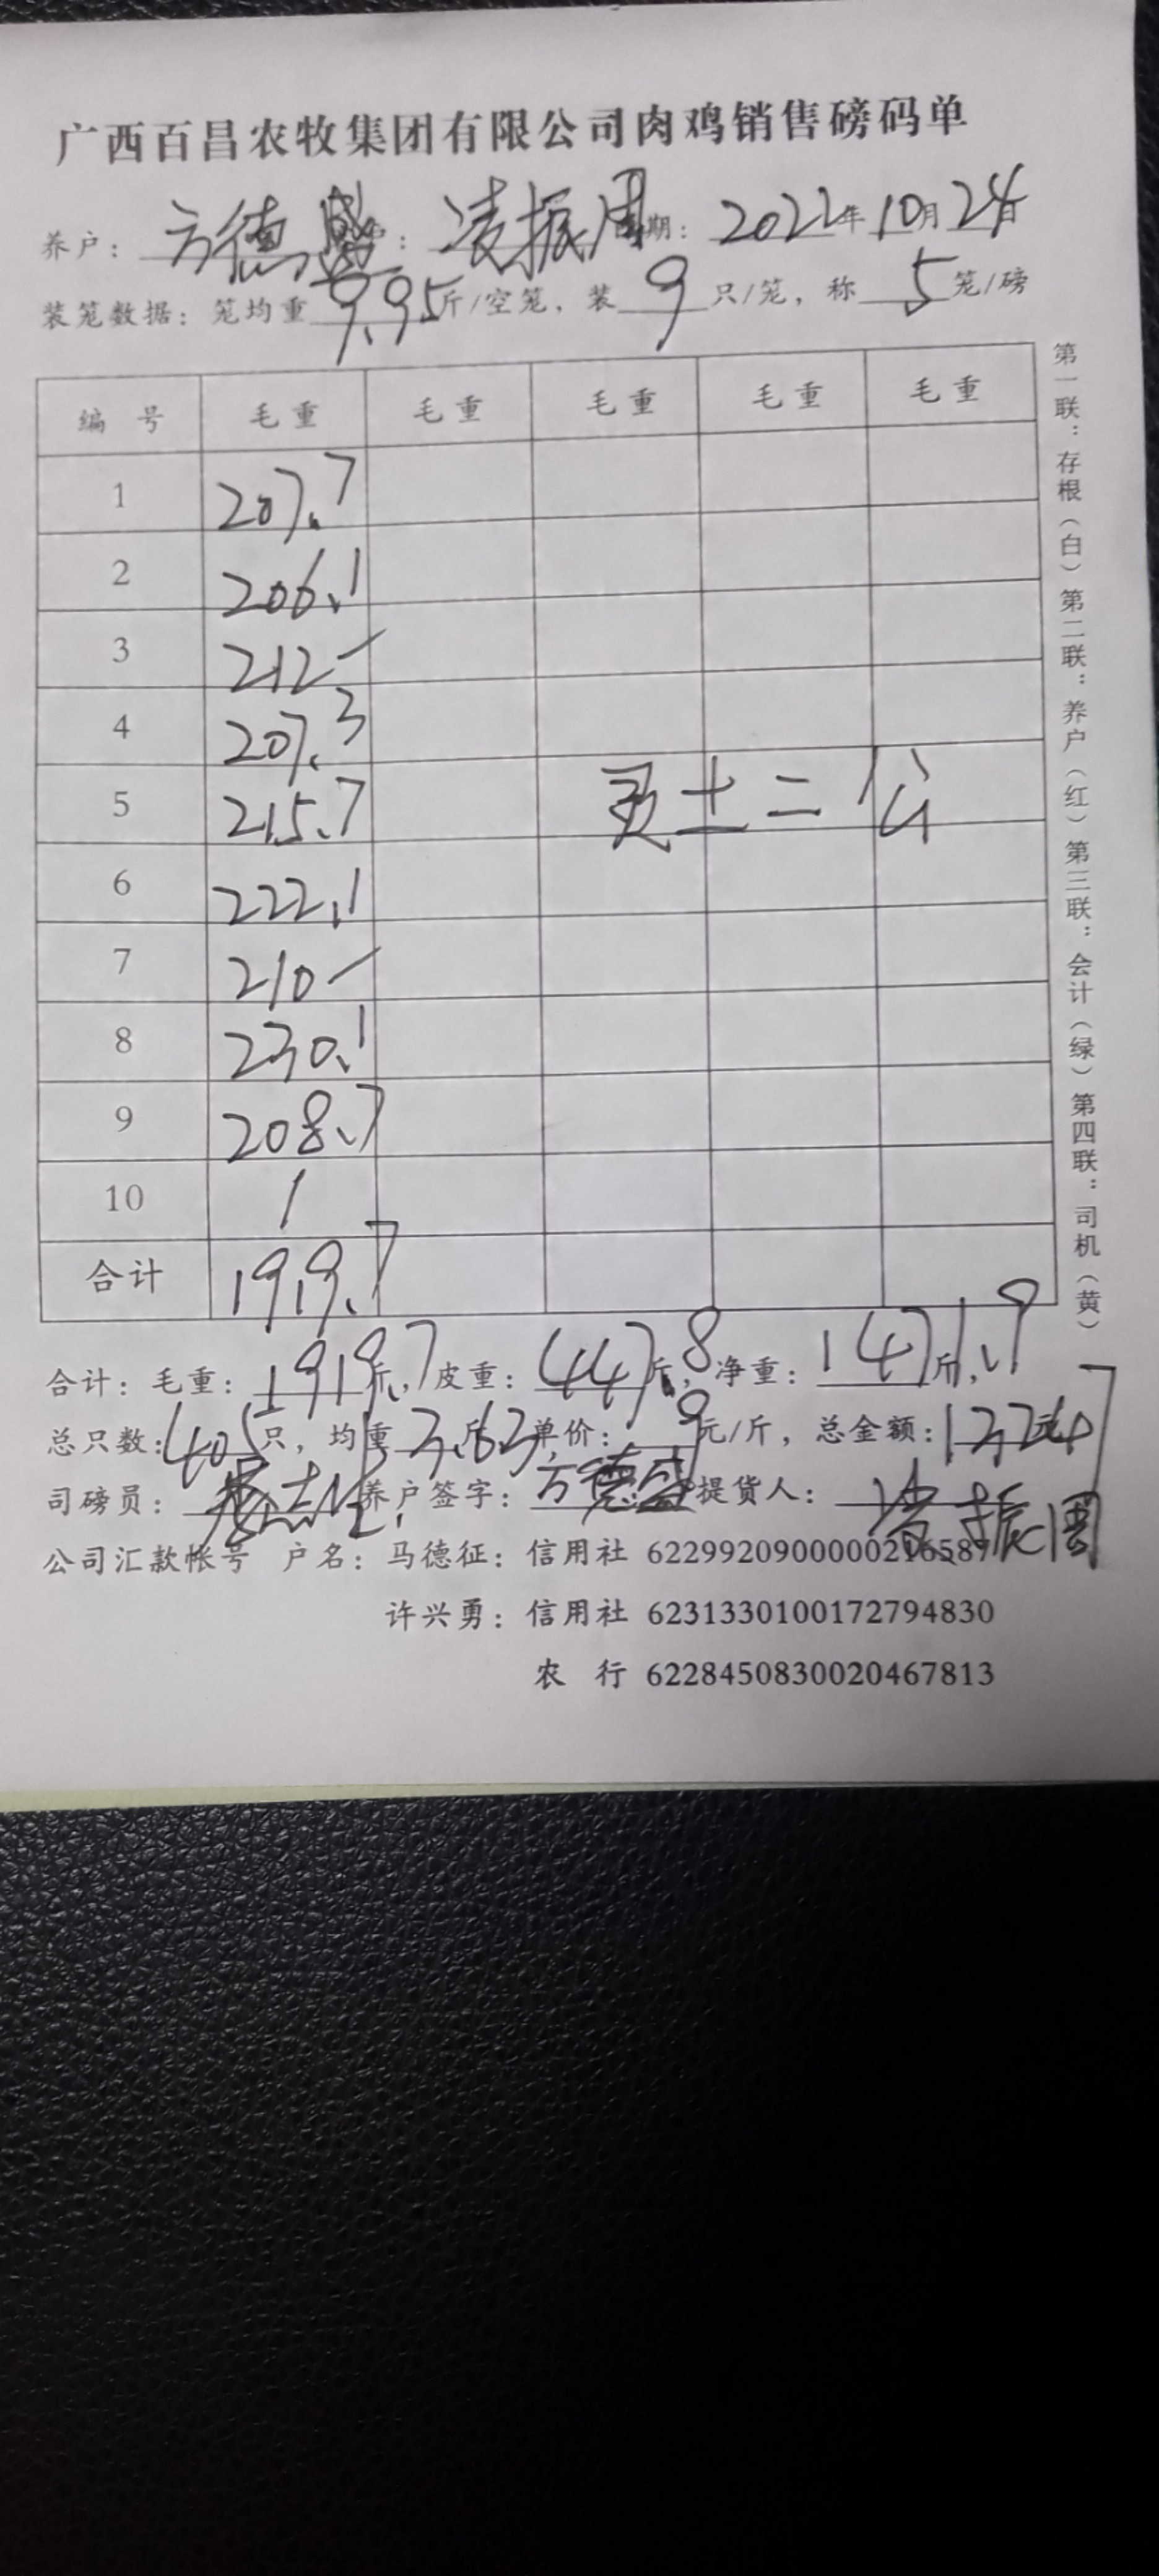 广西百昌农牧集团有限公司肉鸡销售磅码单
养户：方德盛 ：凌振周 期：2022年10月24日
装笼数据：笼均重9.95斤/空笼，装9只/笼，称5笼/磅
编 号 毛重 毛重 毛重 毛重 毛重
1 207.7
2 206.1
3 212-
4 207.3
5 215.7
土二 公
6 222.1
7 210-
8 230.1
9 208.7
10 /
合计 1919.7
合计：毛重：1919.7斤，皮重：447.8斤，净重：1471.9斤，
总只数：405只，均重3.63斤 单价：9元/斤，总金额：13247
司磅员： 养户签字：方德盛 提货人：凌振周
公司汇款帐号 户名：马德征：信用社
许兴勇：信用社 6231330100172794830
农 行 6228450830020467813
第一联：存根（白）第二联：养户（红）第三联：会计（绿）第四联：司机（黄）